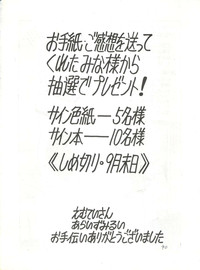 お手紙・ご感想を送って
くれたみな様から
抽選でプレゼント!
サイン色紙―5名様
サイン本―10名様
《しめ切り・9月末日》
えむていさん
あらいずみるい
お手伝いありがとうございました